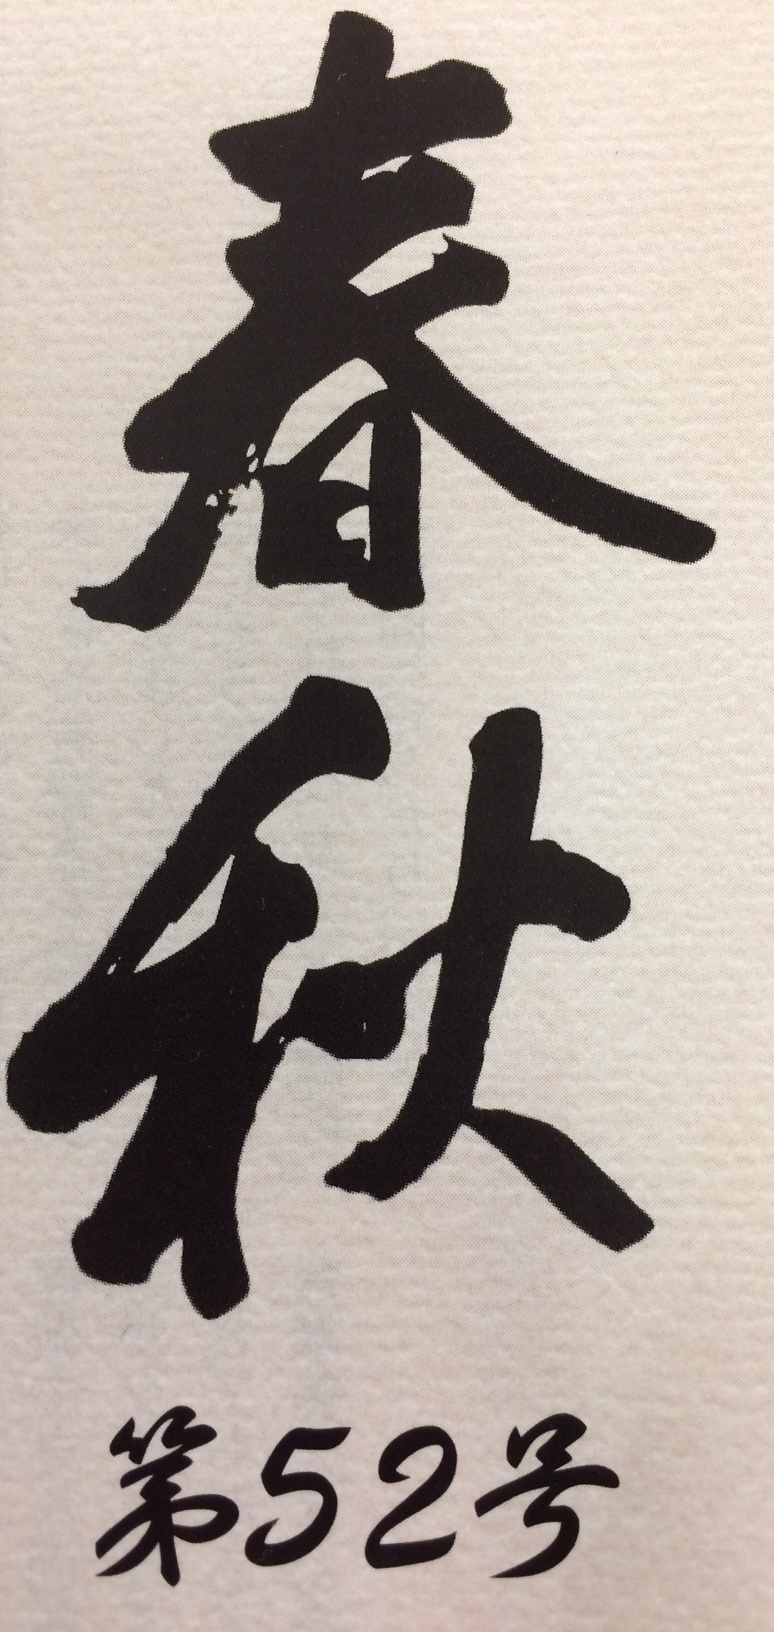 春秋
第52号